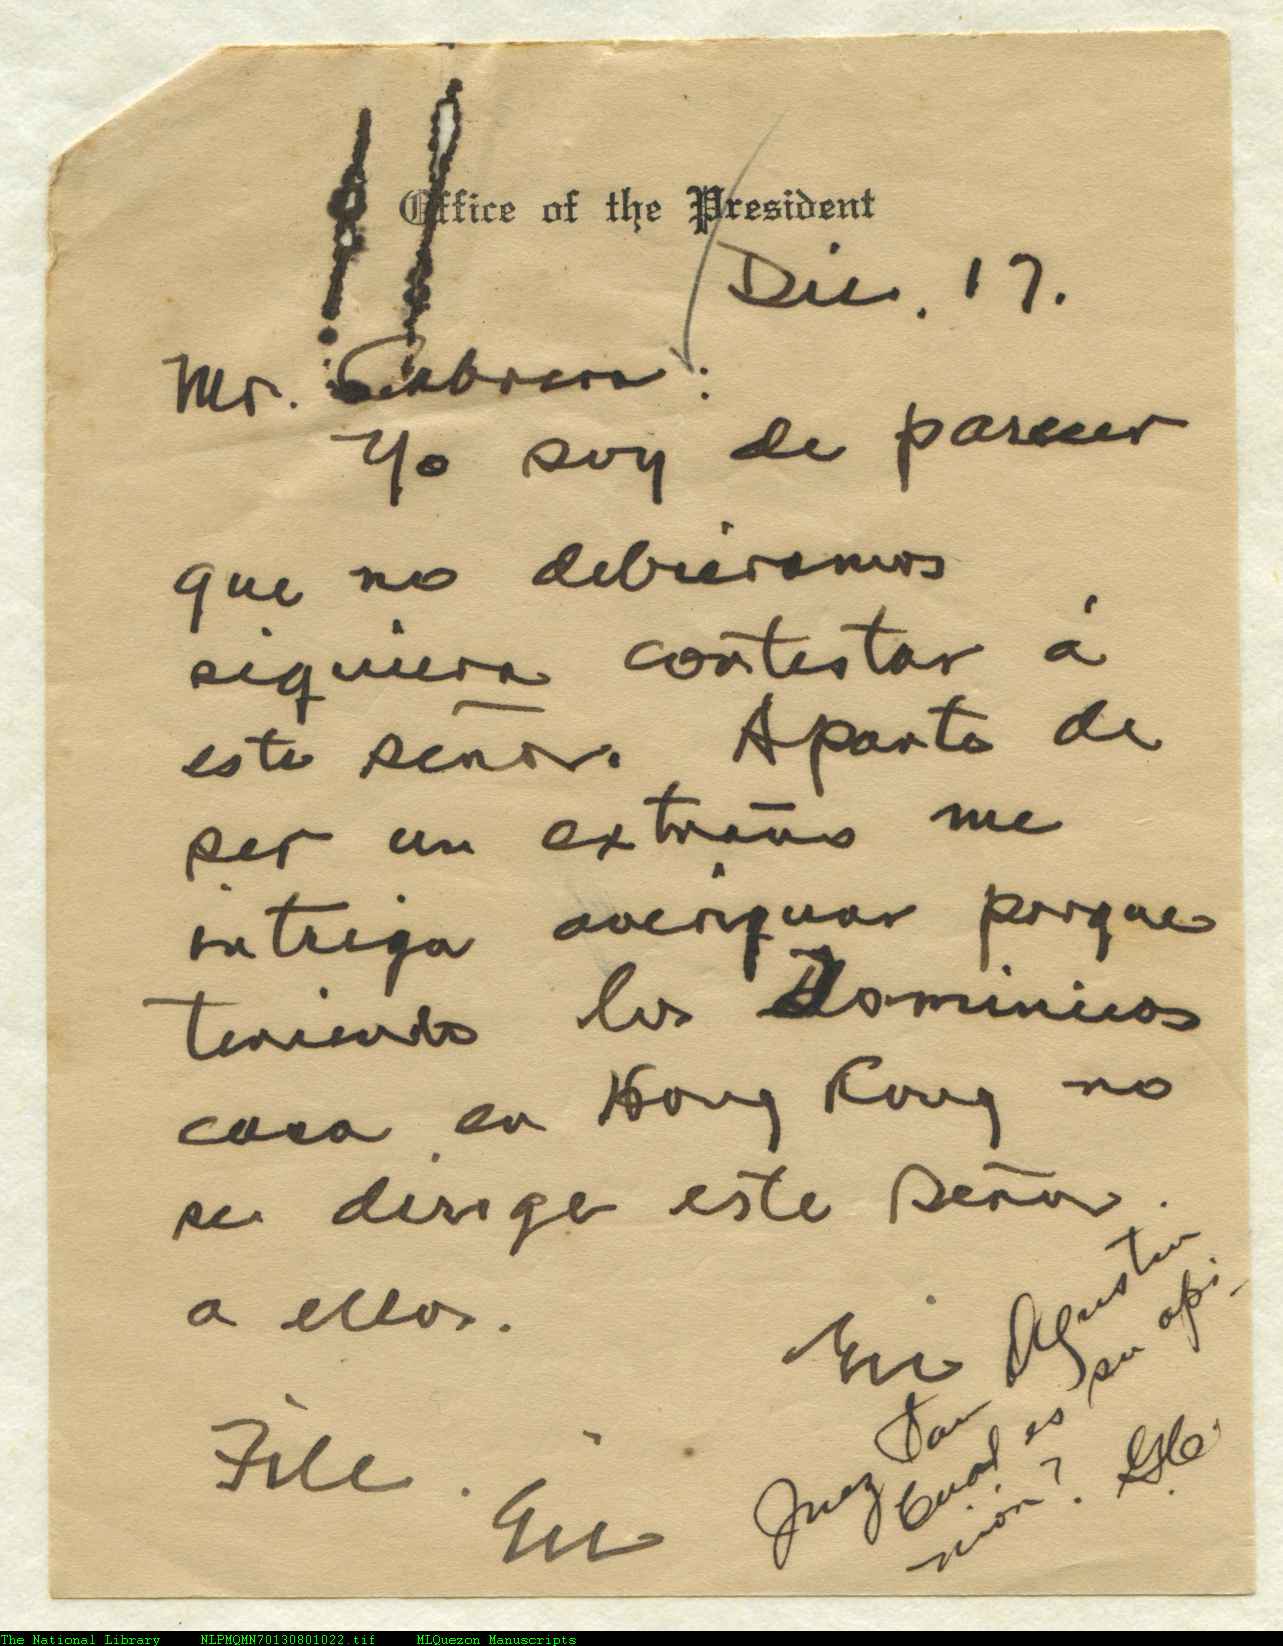 Office of the President
Dic. 17.
Mr. Cabrera:
Yo soy de parecer
que no debieramos
siquiera contestar á
este señor. Aparte de
ser un extraño me
intriga averiguar porque
teniendo los Dominicos
casa en Hong Kong no
se dirige este señor
a ellos.
File.
Juez San Agustin
Cual es su opi-
nión?
The National Library NLPMQMN70130801022.tif MLQuezon Manuscripts